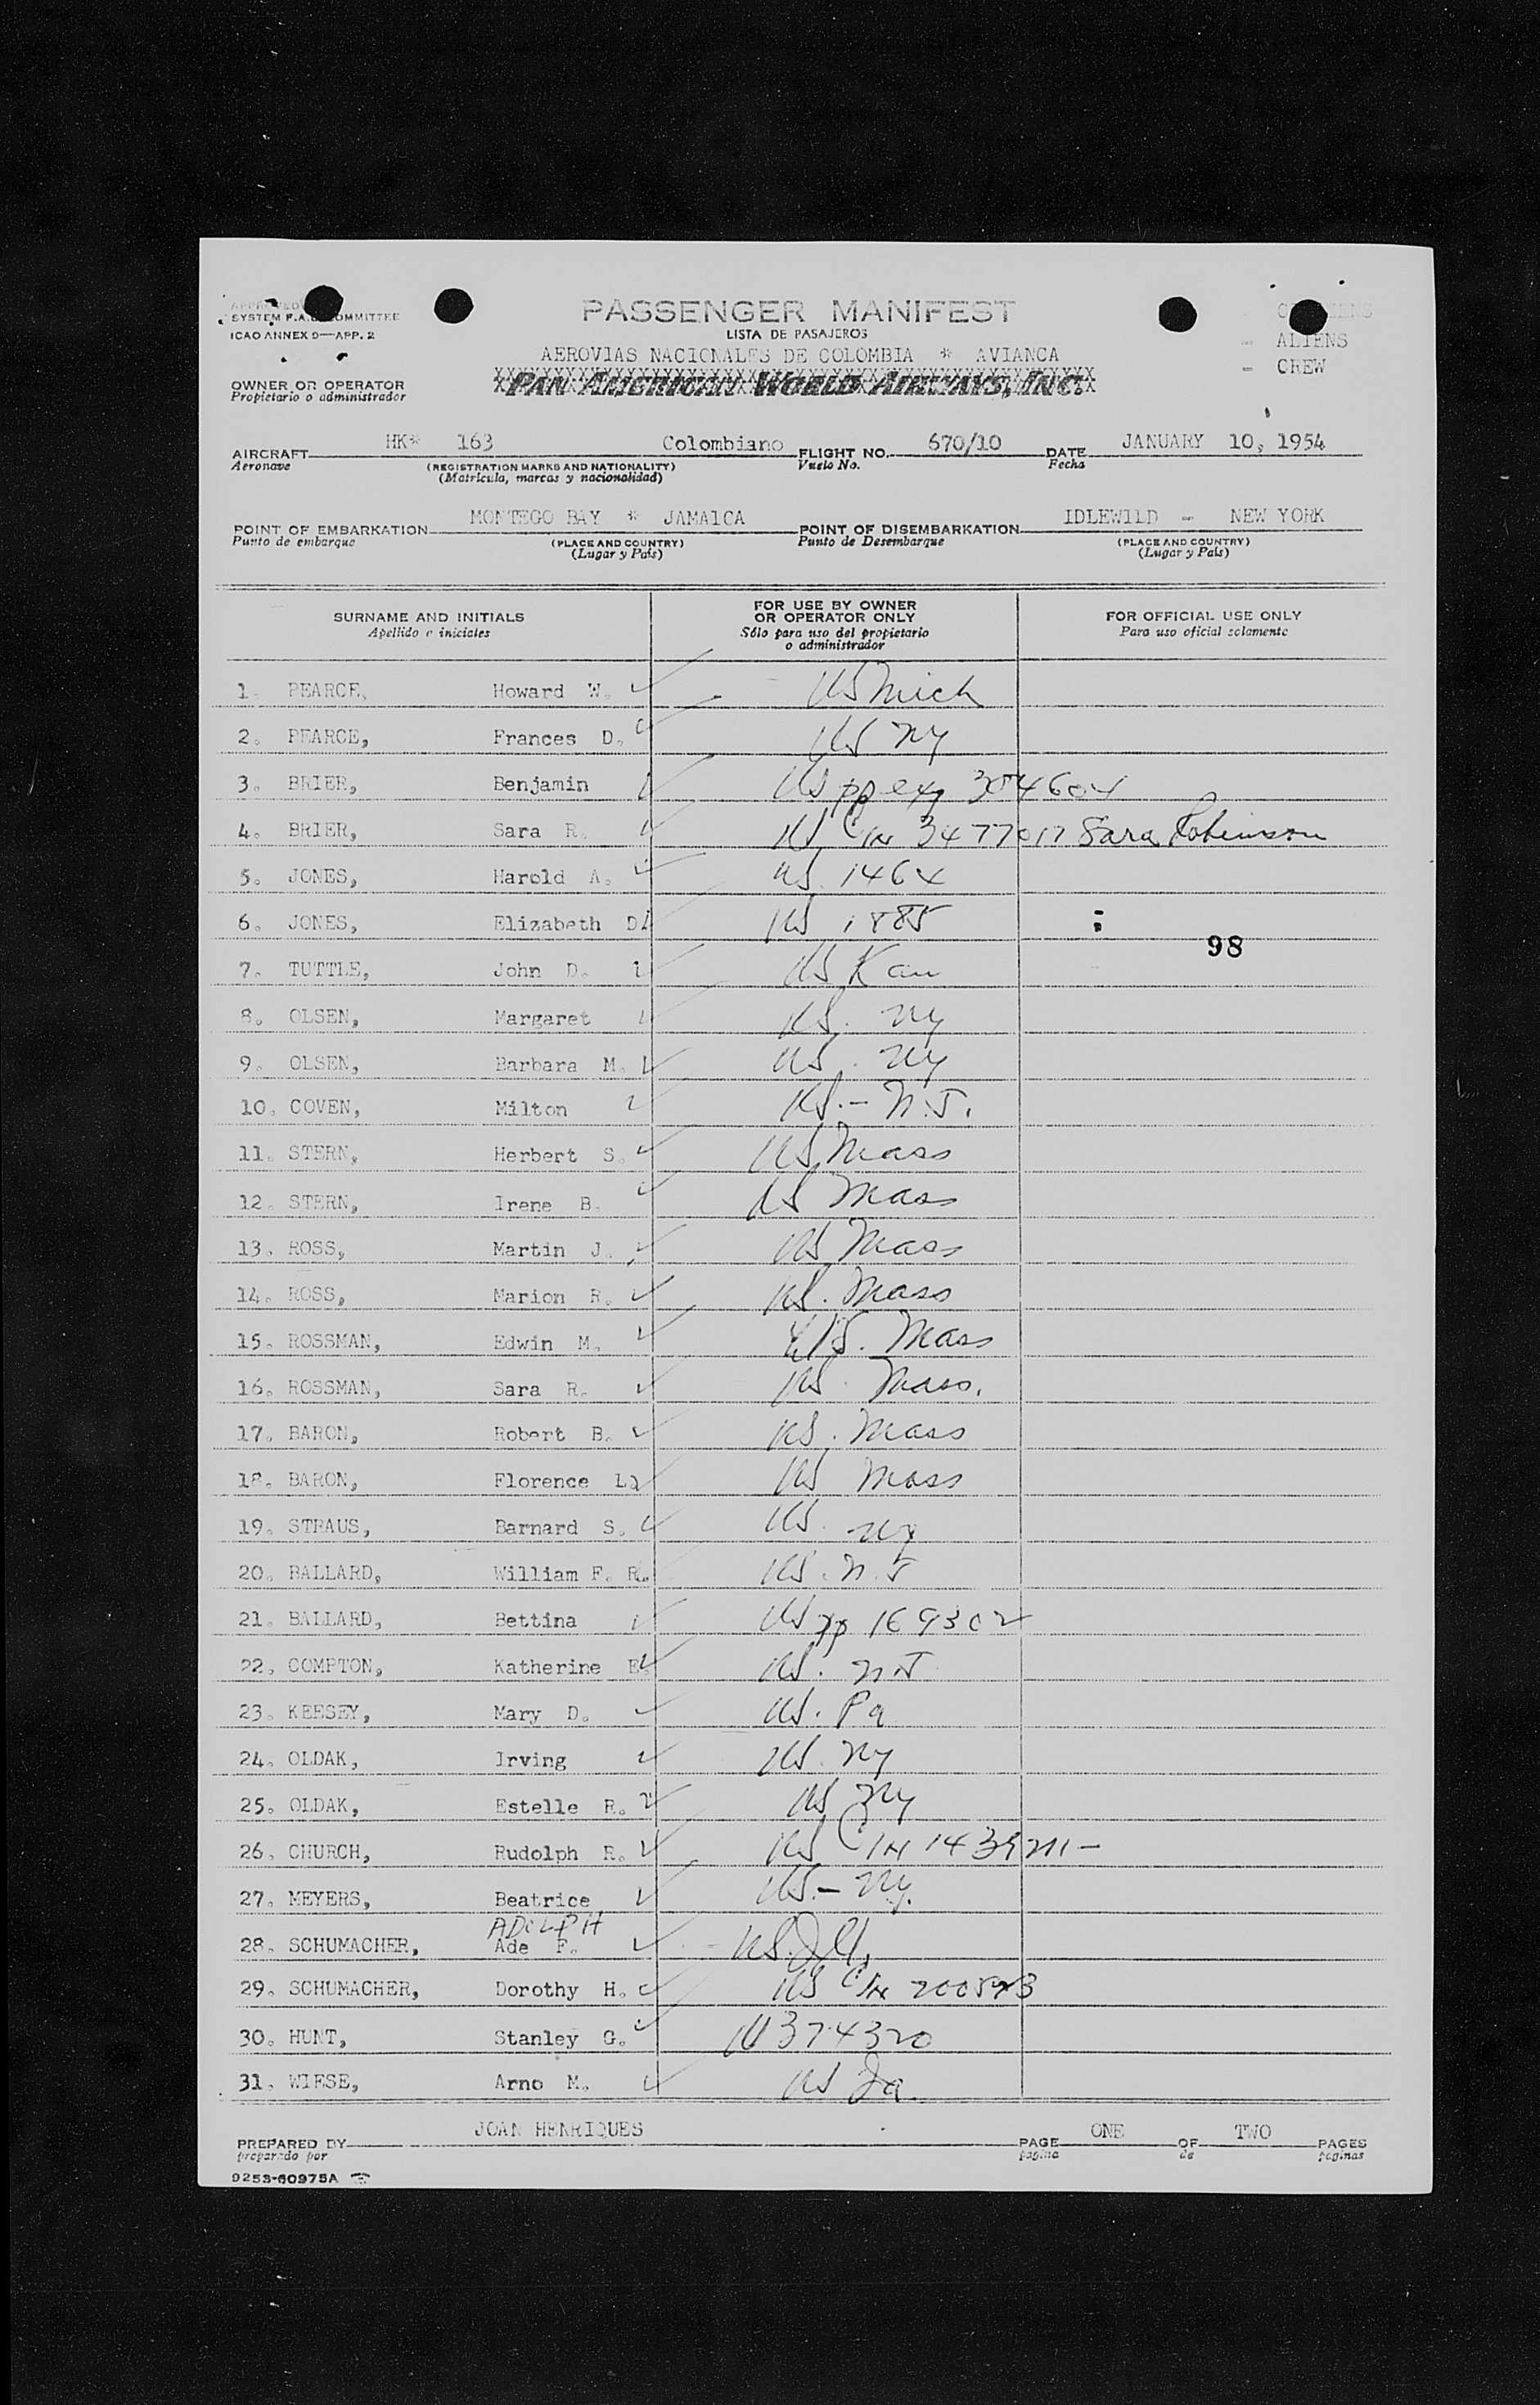 APPROVED
SYSTEM F.A.L. COMMITTEE
ICAO ANNEX 9—APP. 2
PASSENGER MANIFEST
LISTA DE PASAJEROS
AEROVIAS NACIONALES DE COLOMBIA * AVIANCA
PAN AMERICAN WORLD AIRWAYS, INC.
ALIENS
CREW
OWNER OR OPERATOR
Propietario o administrador
AIRCRAFT HK* 163 Colombiano FLIGHT NO. 670/10 DATE JANUARY 10, 1954
Aeronave (REGISTRATION MARKS AND NATIONALITY) Vuelo No. Fecha
(Matrícula, marcas y nacionalidad)
POINT OF EMBARKATION MONTEGO BAY * JAMAICA POINT OF DISEMBARKATION IDLEWILD - NEW YORK
Punto de embarque (PLACE AND COUNTRY) Punto de Desembarque (PLACE AND COUNTRY)
(Lugar y País) (Lugar y País)
SURNAME AND INITIALS
Apellido e iniciales
FOR USE BY OWNER
OR OPERATOR ONLY
Sólo para uso del propietario
o administrador
FOR OFFICIAL USE ONLY
Para uso oficial solamente
1. PEARCE, Howard W. US Mich
2. PEARCE, Frances D. US NY
3. BRIER, Benjamin US pp 304604
4. BRIER, Sara R. US C/N 3477017 Sara Robinson
5. JONES, Harold A. US. 1464
6. JONES, Elizabeth D. US 1885
98
7. TUTTLE, John D. US Kan
8. OLSEN, Margaret US. NY
9. OLSEN, Barbara M. US. NY
10. COVEN, Milton US.- N.J.
11. STERN, Herbert S. US Mass
12. STERN, Irene B. US Mass
13. ROSS, Martin J. US Mass
14. ROSS, Marion R. US. Mass
15. ROSSMAN, Edwin M. US. Mass
16. ROSSMAN, Sara R. US. Mass.
17. BARON, Robert B. US. Mass
18. BARON, Florence L. US Mass
19. STRAUS, Barnard S. US. NY
20. BALLARD, William F. R. US. N.J
21. BALLARD, Bettina US pp 169302
22. COMPTON, Katherine E. US. NJ
23. KEESEY, Mary D. US. Pa
24. OLDAK, Irving US. NY
25. OLDAK, Estelle R. US NY
26. CHURCH, Rudolph R. US C/N
27. MEYERS, Beatrice US.- NY.
ADOLPH
28. SCHUMACHER, Ade F. US. Ill.
29. SCHUMACHER, Dorothy H. US C/N
30. HUNT, Stanley G. US 374320
31. WIESE, Arno M. US
PREPARED BY JOAN HENRIQUES PAGE ONE OF TWO PAGES
preparado por pagina de paginas
9253-60975A